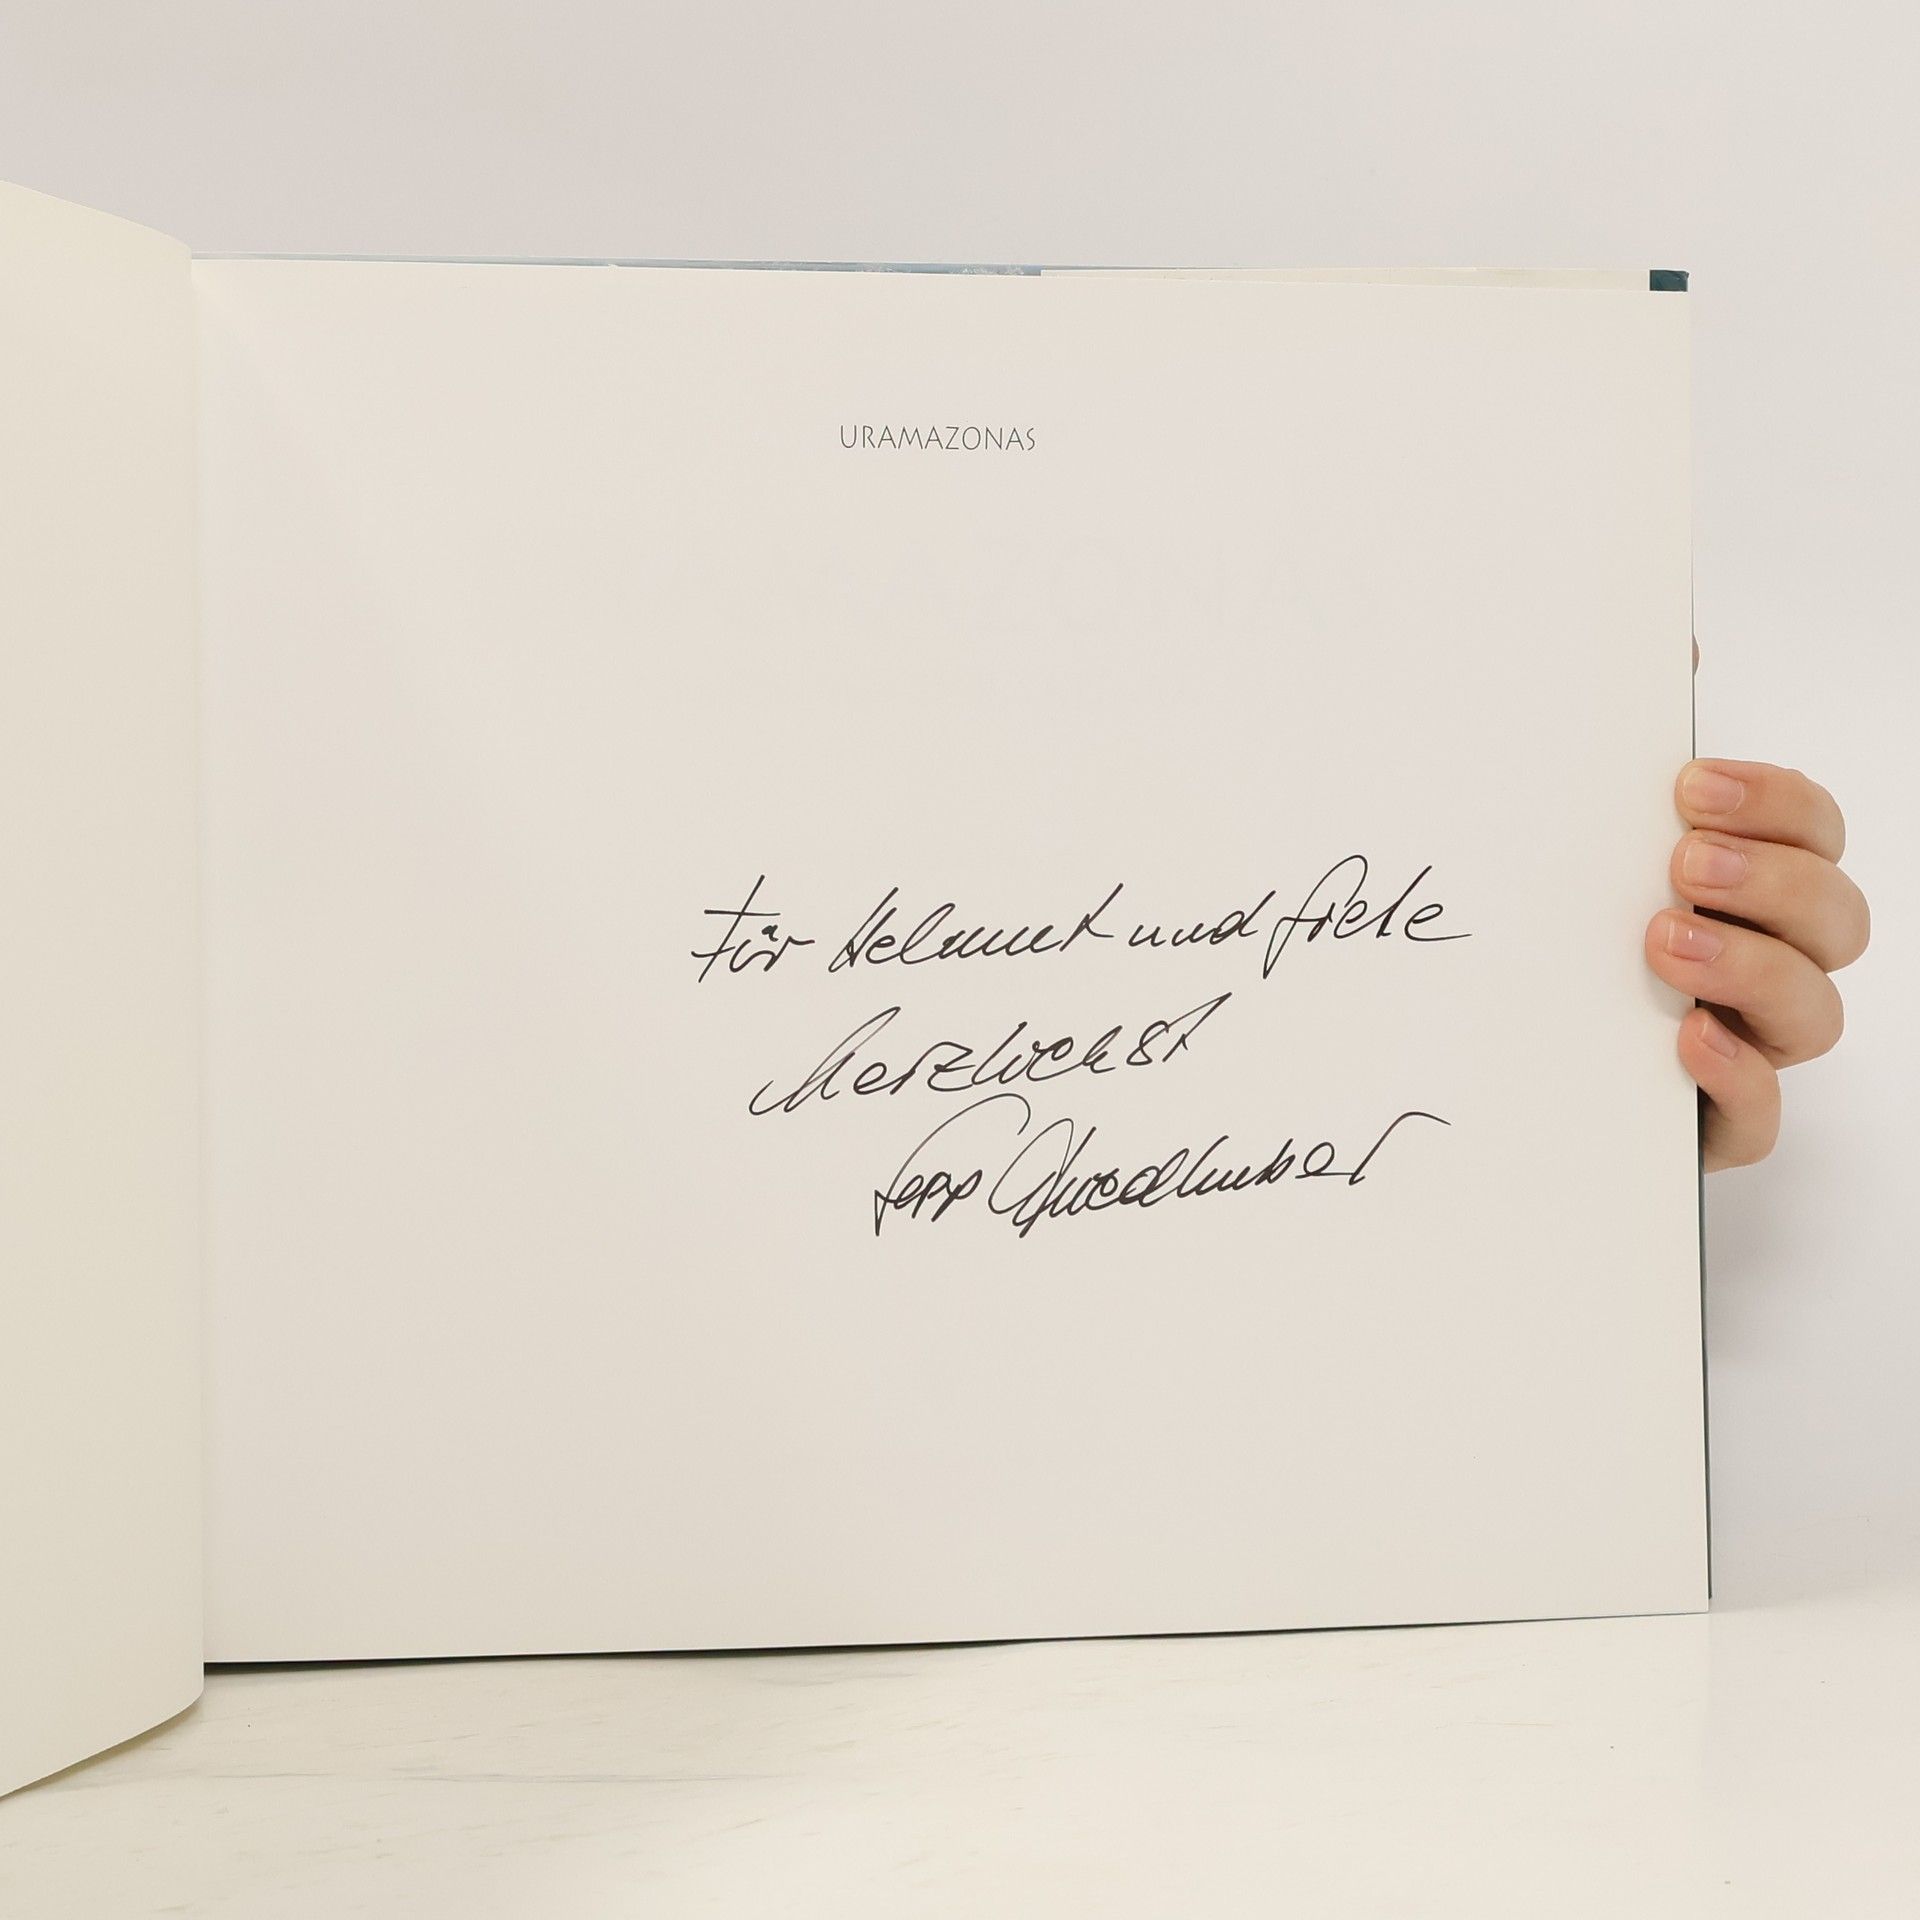 URAMAZONAS
Für Helmut und Grete
herzlichst
Sepp Friedhuber